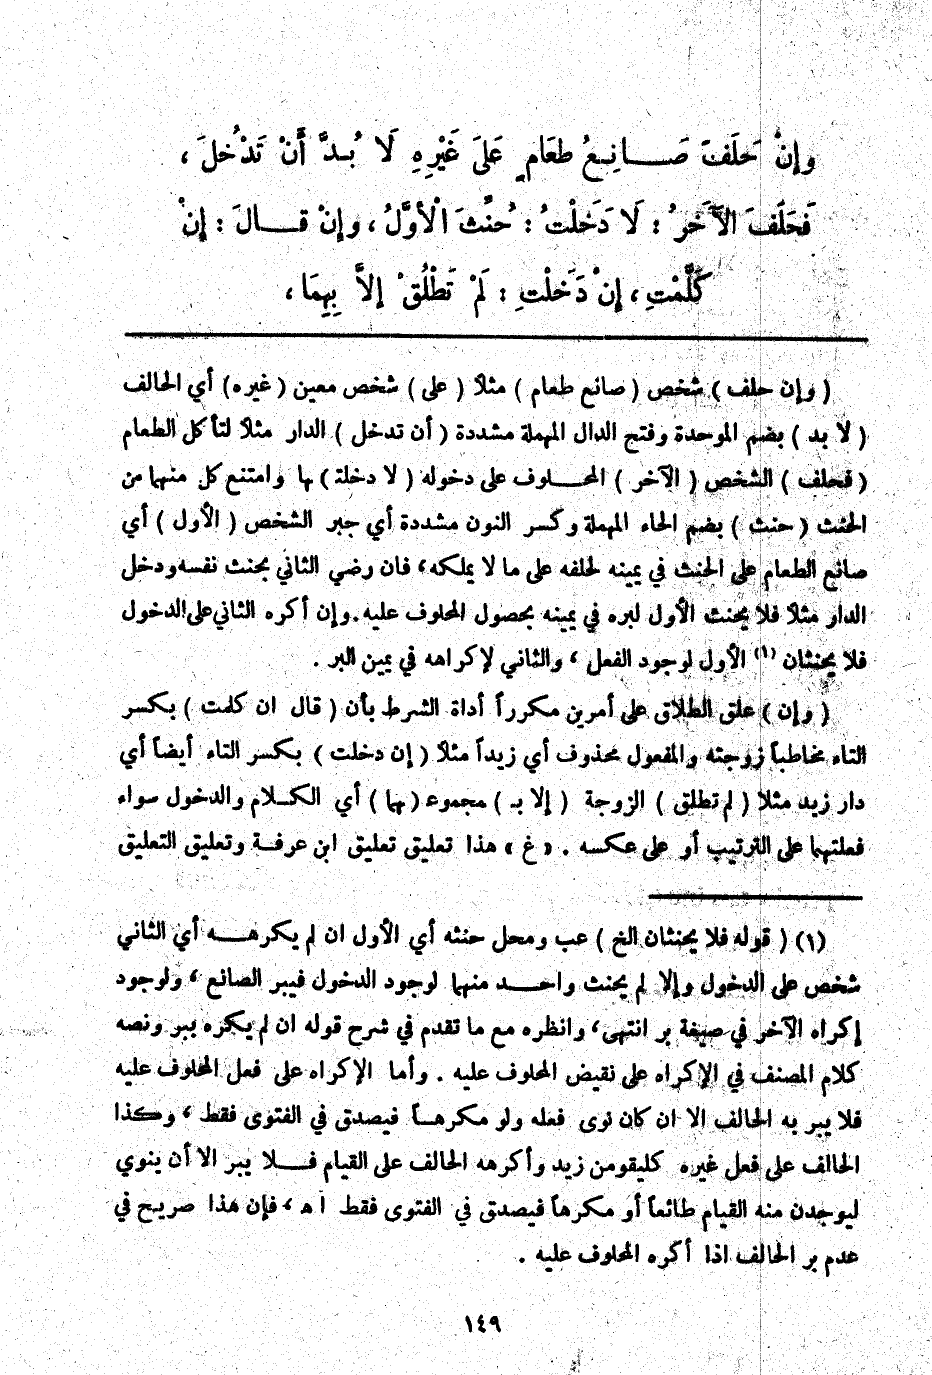 وإنْ حَلَفَ صَـــانِعُ طَعَامٍ عَلَى غَيْرِهِ لَا بُـدَّ أَنْ تَدْخُلَ ،
فَحَلَفَ الآخَرُ : لَا دَخَلْتُ : حُنِّثَ الْأَوَّلُ ، وإنْ قـــالَ : إنْ
كَلَّمْتِ ، إنْ دَخَلْتِ : لَمْ تَطْلُقْ إلاَّ بِهِمَا ،
( وإن حلف ) شخص ( صانع طعام ) مثلاً ( على ) شخص معين ( غيره ) أي الحالف
( لا بد ) بضم الموحدة وفتح الدال المهملة مشددة ( أن تدخل ) الدار مثلاً لتأكل الطعام
( فحلف ) الشخص ( الآخر ) المحـــلوف على دخوله ( لا دخلتـ ) ها وامتنع كل منهما من
الحنث ( حنث ) بضم الحاء المهملة وكسر النون مشددة أي جبر الشخص ( الأول ) أي
صانع الطعام على الحنث في يمينه لحلفه على ما لا يملكه ، فان رضي الثاني بحنث نفسه ودخل
الدار مثلاً فلا يحنث الأول لبره في يمينه بحصول المحلوف عليه . وإن أكره الثاني على الدخول
فلا يحنثان (١) الأول لوجود الفعل ، والثاني لإكراهه في يمين البر .
( وإن ) علق الطلاق على أمرين مكرراً أداة الشرط بأن ( قال ان كلمت ) بكسر
التاء مخاطباً زوجته والمفعول محذوف أي زيداً مثلاً ( إن دخلت ) بكسر التاء أيضاً أي
دار زيد مثلا ( لم تطلق ) الزوجة ( إلا بـ ) مجموع ( هما ) أي الكلام والدخول سواء
فعلتهما على الترتيب أو على عكسه . « غ » هذا تعليق تعليق ابن عرفـة وتعليق التعليق
(١) ( قوله فلا يحنثان الخ ) عب ومحل حنثه أي الأول ان لم يكرهـــه أي الثاني
شخص على الدخول وإلا لم يحنث واحـــد منهما لوجود الدخول فيبر الصانع ، ولوجود
إكراه الآخر في صيغة بر انتهى ، وانظره مع ما تقدم في شرح قوله ان لم يكره ببر ونصه
كلام المصنف في الإكراه على نقيض المحلوف عليه . وأما الإكراه على فعل المحلوف عليه
فلا يبر به الحالف الا ان كان نوى فعله ولو مكرهـاً فيصدق في الفتوى فقط ، وكذا
الحالف على فعل غيره كليقومن زيد وأكرهه الحالف على القيام فـــلا يبر الا أن ينوي
ليوجدن منه القيام طائعاً أو مكرهاً فيصدق في الفتوى فقط اه ، فإن هذا صريح في
عدم بر الحالف اذا أكره المحلوف عليه .
١٤٩